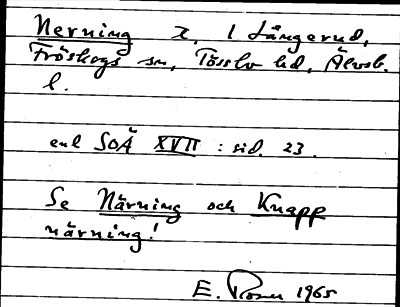 Nerning 2, 1 Långerud,
Fröskogs sn, Tössbo hd, Älvsb.
l.
enl SOÄ XVII : sid. 23.
Se Närning och Knapp
närning!
E. Rosen 1965